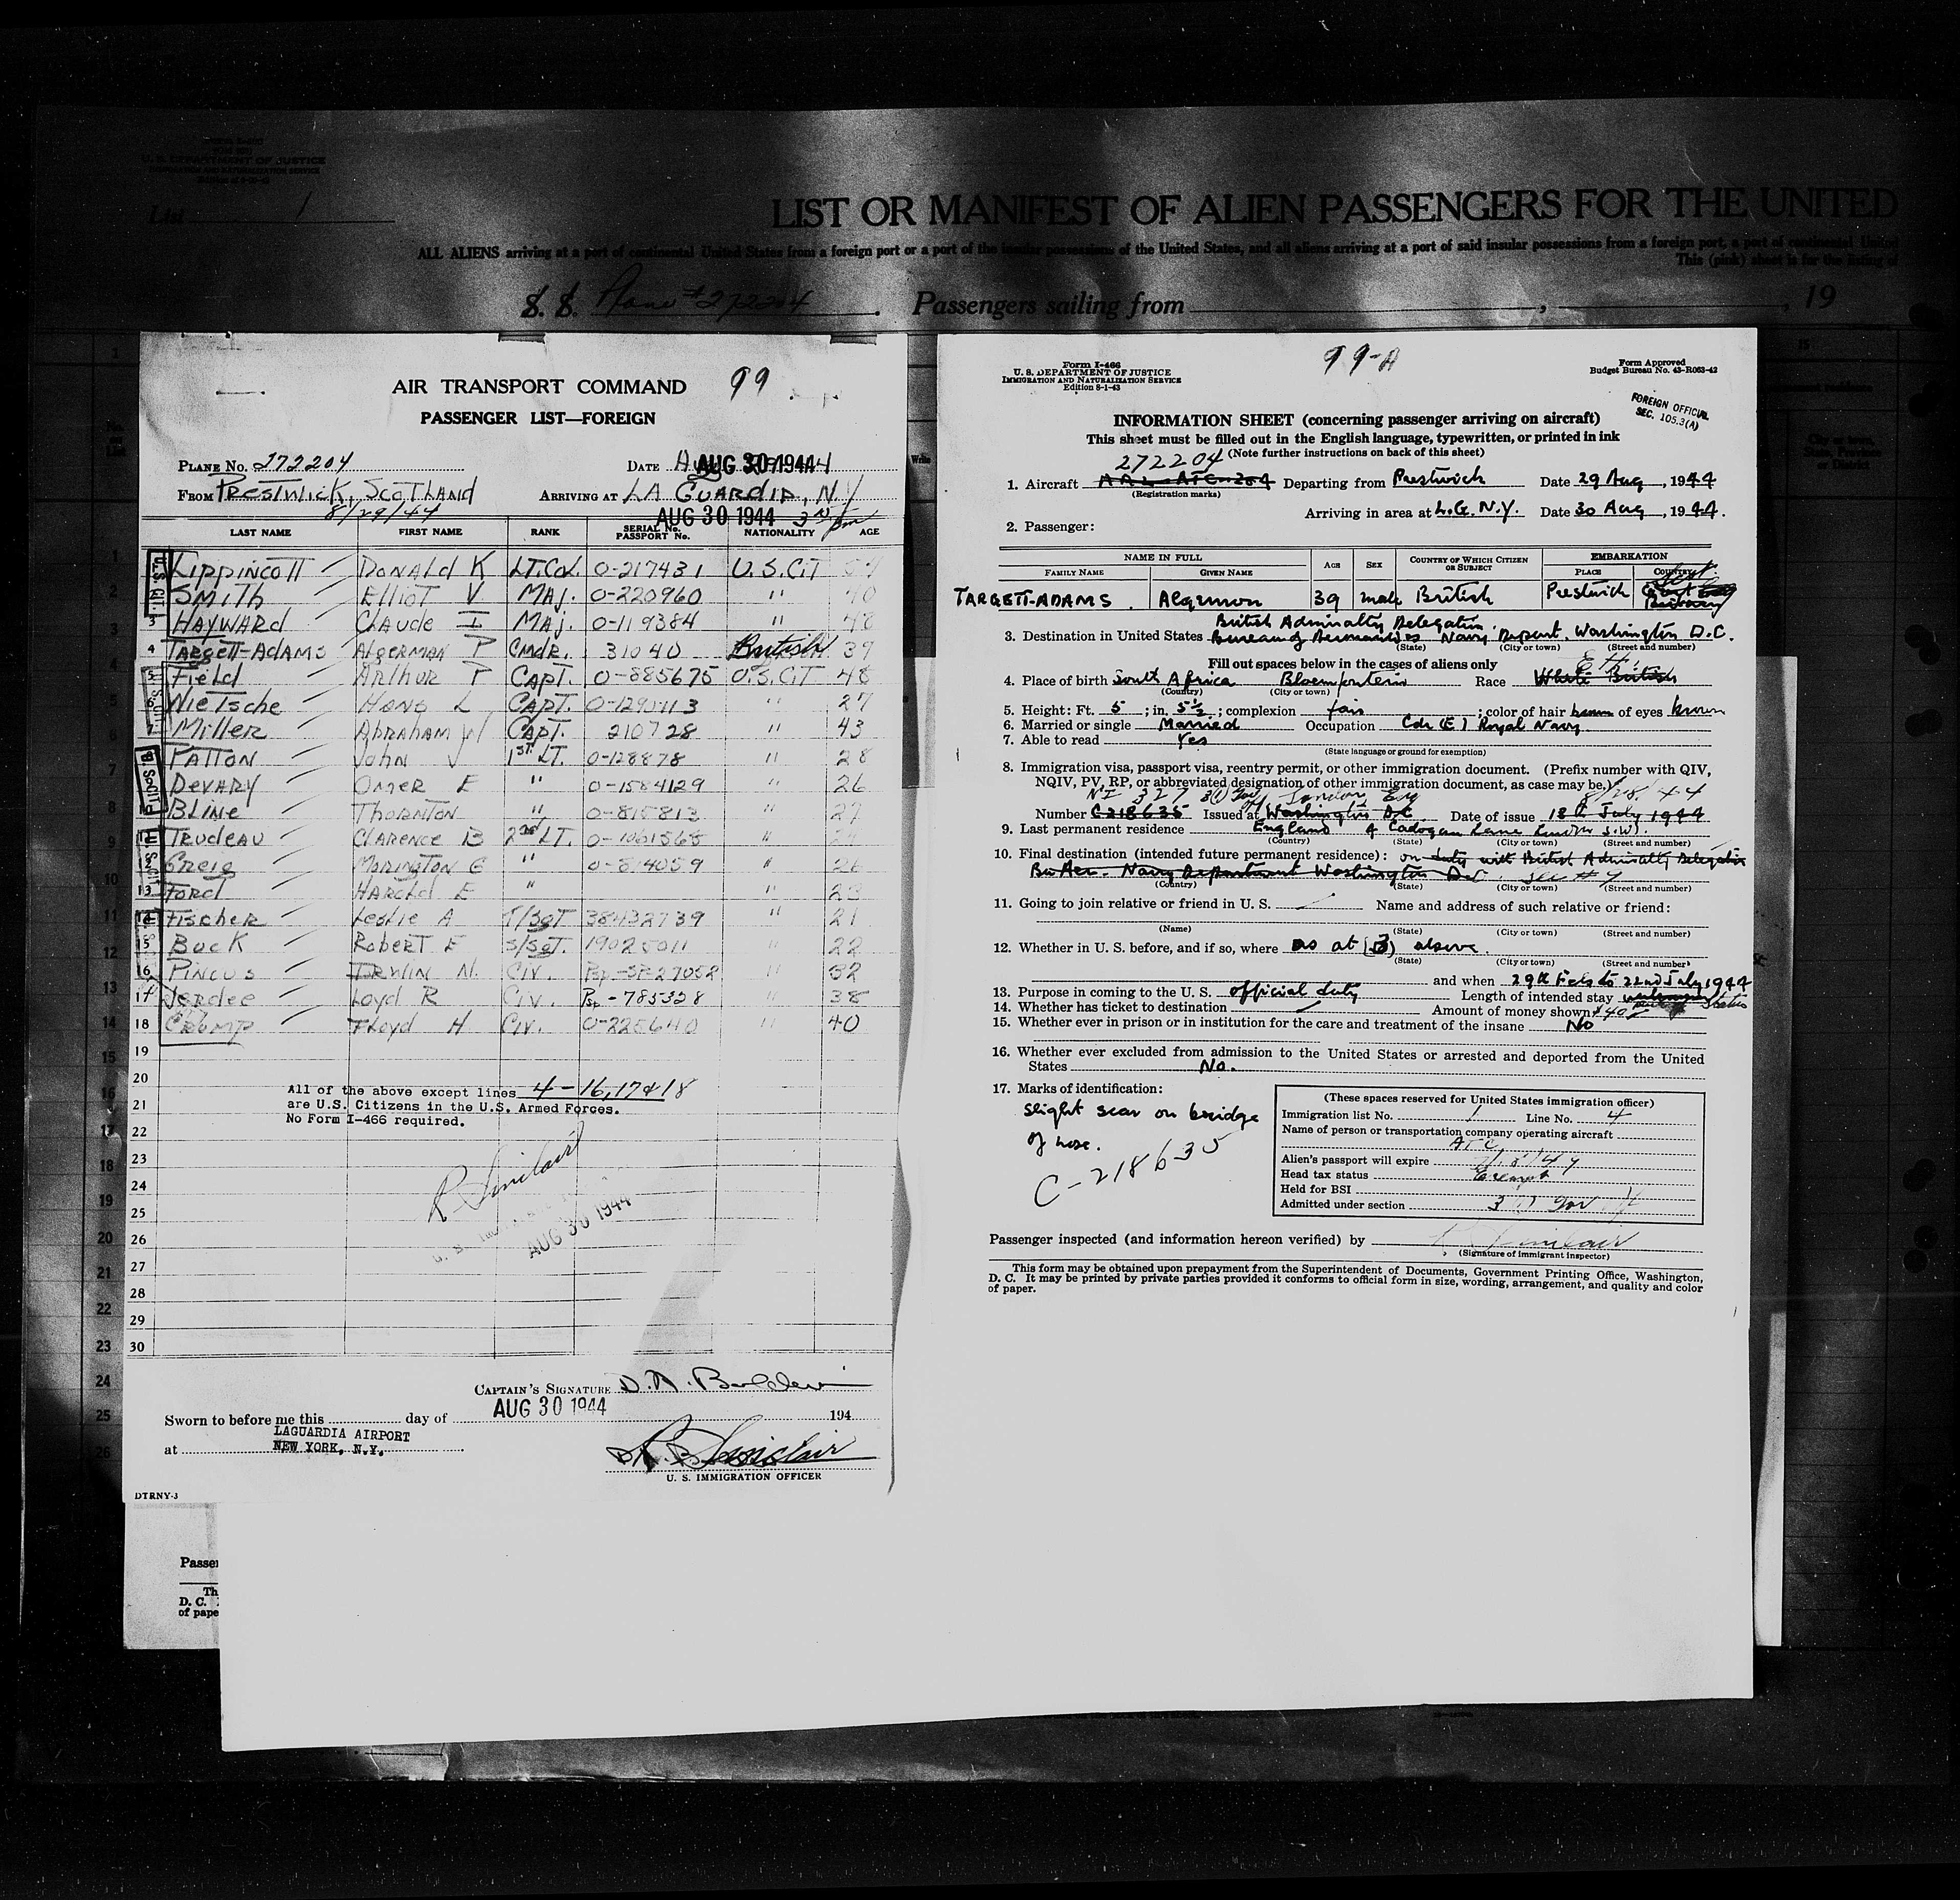 U. S. DEPARTMENT OF JUSTICE
IMMIGRATION AND NATURALIZATION SERVICE
List 1
LIST OR MANIFEST OF ALIEN PASSENGERS FOR THE UNITED
ALL ALIENS arriving at a port of continental United States from a foreign port or a port of the insular possessions of the United States, and all aliens arriving at a port of said insular possessions from a foreign port, a port of continental United
This (pink) sheet is for the listing of
S. S. Plane #272204 . Passengers sailing from , , 19
AIR TRANSPORT COMMAND 99
PASSENGER LIST—FOREIGN
PLANE No. 272204 DATE AUG 30 1944
FROM Prestwick, Scotland ARRIVING AT LA GUARDIA, N.Y
8/29/44 AUG 30 1944 pm
LAST NAME FIRST NAME RANK SERIAL No. PASSPORT No. NATIONALITY AGE
1 Lippincott Donald K LT.Col. 0-217431 U.S.CIT
2 Smith Elliot V MAJ. 0-220960 " 40
3 Hayward Claude I MAJ. 0-119384 " 48
4 Targett-Adams Algerman P Cmdr. 31040 British 39
5 Field Arthur P CAPT. 0-885675 U.S.CIT 48
6 Nietsche Hans L CAPT. " 27
7 Miller Abraham W CAPT. 210728 " 43
Patton John V 1st LT. 0-128878 " 28
Devary Omer E " 0-1584129 " 26
Bline Thornton " 0-815813 " 27
Trudeau Clarence B 2nd LT. 0-1031568 "
Greig Morington G " 0-814059 " 26
13 Ford Harold E " 23
14 Fischer Leslie A T/Sgt 38432739 " 21
15 Buck Robert E S/Sgt. 19025011 " 22
16 Pincus Irwin N. Civ. " 32
17 Jerdee Loyd R Civ. Psp-785328 " 38
18 Crump Floyd H Civ. 0-225640 " 40
19
20
All of the above except lines 4-16,17&18
21
are U.S. Citizens in the U.S. Armed Forces.
No Form I-466 required.
22
23
24
R Sinclair
25
AUG 30 1944
26
27
28
29
30
CAPTAIN'S SIGNATURE
Sworn to before me this day of AUG 30 1944 194
at LAGUARDIA AIRPORT
NEW YORK, N.Y.
R. B. Sinclair
U. S. IMMIGRATION OFFICER
DTRNY-3
Passe
Th
D. C.
of pape
99-A
Form I-466
U. S. DEPARTMENT OF JUSTICE
IMMIGRATION AND NATURALIZATION SERVICE
Edition 8-1-43
Form Approved
Budget Bureau No. 43-R063-42
FOREIGN OFFICIAL
SEC. 105.3(A)
INFORMATION SHEET (concerning passenger arriving on aircraft)
This sheet must be filled out in the English language, typewritten, or printed in ink
(Note further instructions on back of this sheet)
272204
1. Aircraft Departing from Prestwick Date 29 Aug , 1944
(Registration marks)
Arriving in area at L.G. N.Y. Date 30 Aug , 1944.
2. Passenger:
NAME IN FULL AGE SEX COUNTRY OF WHICH CITIZEN OR SUBJECT EMBARKATION
FAMILY NAME GIVEN NAME PLACE COUNTRY
TARGETT-ADAMS. Algernon 39 male British Prestwick Scot.
British Admiralty Delegation
3. Destination in United States Bureau of Aeronautics Navy Depart. Washington D.C.
(State) (City or town) (Street and number)
Fill out spaces below in the cases of aliens only
4. Place of birth South Africa Bloemfontein Race White British
(Country) (City or town)
5. Height: Ft. 5 ; in. 5½ ; complexion fair ; color of hair brown of eyes brown
6. Married or single Married Occupation Cdr (E) Royal Navy
7. Able to read Yes
(State language or ground for exemption)
8. Immigration visa, passport visa, reentry permit, or other immigration document. (Prefix number with QIV,
NQIV, PV, RP, or abbreviated designation of other immigration document, as case may be.)
327 3(1) Gov London Eng 8/28/44
Number C218635 Issued at Washington DC Date of issue 18th July 1944
9. Last permanent residence England 4 Cadogan Lane London S.W.
(Country) (State) (City or town) (Street and number)
10. Final destination (intended future permanent residence): on duty with British Admiralty Delegation
BuAer. Navy Department Washington D.C. See #4
(Country) (State) (City or town) (Street and number)
11. Going to join relative or friend in U. S. Name and address of such relative or friend:
(Name) (State) (City or town) (Street and number)
12. Whether in U. S. before, and if so, where as at (3) above
(State) (City or town) (Street and number)
and when 29th Feb to 22nd July 1944
13. Purpose in coming to the U. S. official duty Length of intended stay
14. Whether has ticket to destination Amount of money shown $40
15. Whether ever in prison or in institution for the care and treatment of the insane No
16. Whether ever excluded from admission to the United States or arrested and deported from the United
States No.
17. Marks of identification:
slight scar on bridge
of nose.
C-218635
(These spaces reserved for United States immigration officer)
Immigration list No. 1 Line No. 4
Name of person or transportation company operating aircraft
ATC
Alien's passport will expire
Head tax status Exempt
Held for BSI
Admitted under section 3 (1) Gov
Passenger inspected (and information hereon verified) by R Sinclair
(Signature of immigrant inspector)
This form may be obtained upon prepayment from the Superintendent of Documents, Government Printing Office, Washington,
D. C. It may be printed by private parties provided it conforms to official form in size, wording, arrangement, and quality and color
of paper.